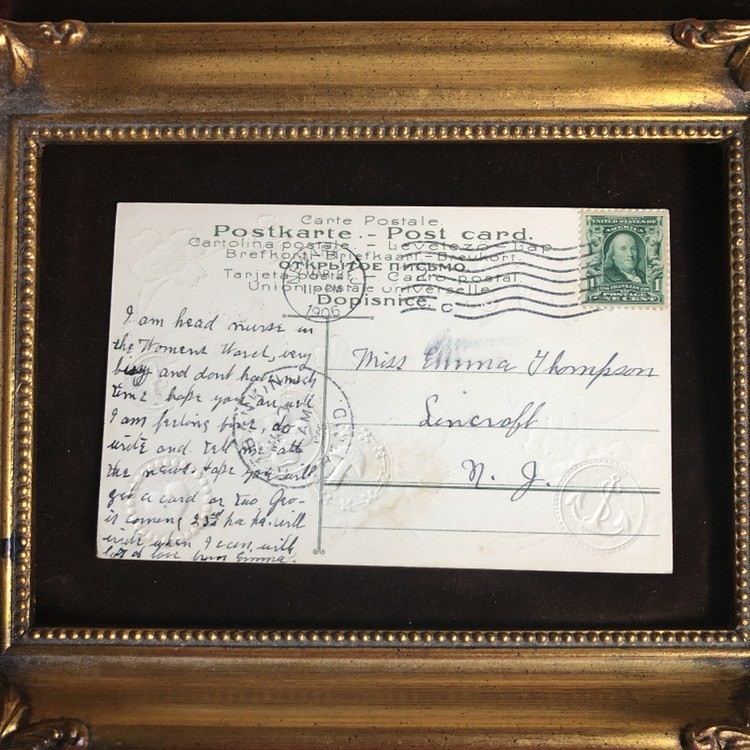 Carte Postale.
Postkarte. – Post card.
Cartolina postale. – Levelező-Lap
Brefkort-Briefkaart-Brevkort.
ОТКРЫТОЕ ПИСЬМО.
Tarjeta postal. – Cadro postal
Union postale universelle
Dopisnice.
UNITED STATES OF
AMERICA
FRANKLIN
1 1
POSTAGE
ONE CENT
N.J.
11-PM
1906
C
I am head nurse in
the Womens Ward, very
busy and dont have much
time hope you are well
I am feeling fine, do
write and tell me all
the news. hope you will
get a card or two Geo-
is coming 23rd ha ha. will
write when I can, with
lot of love from Emma.
Miss Emma Thompson
Lincroft
N. J.
AM